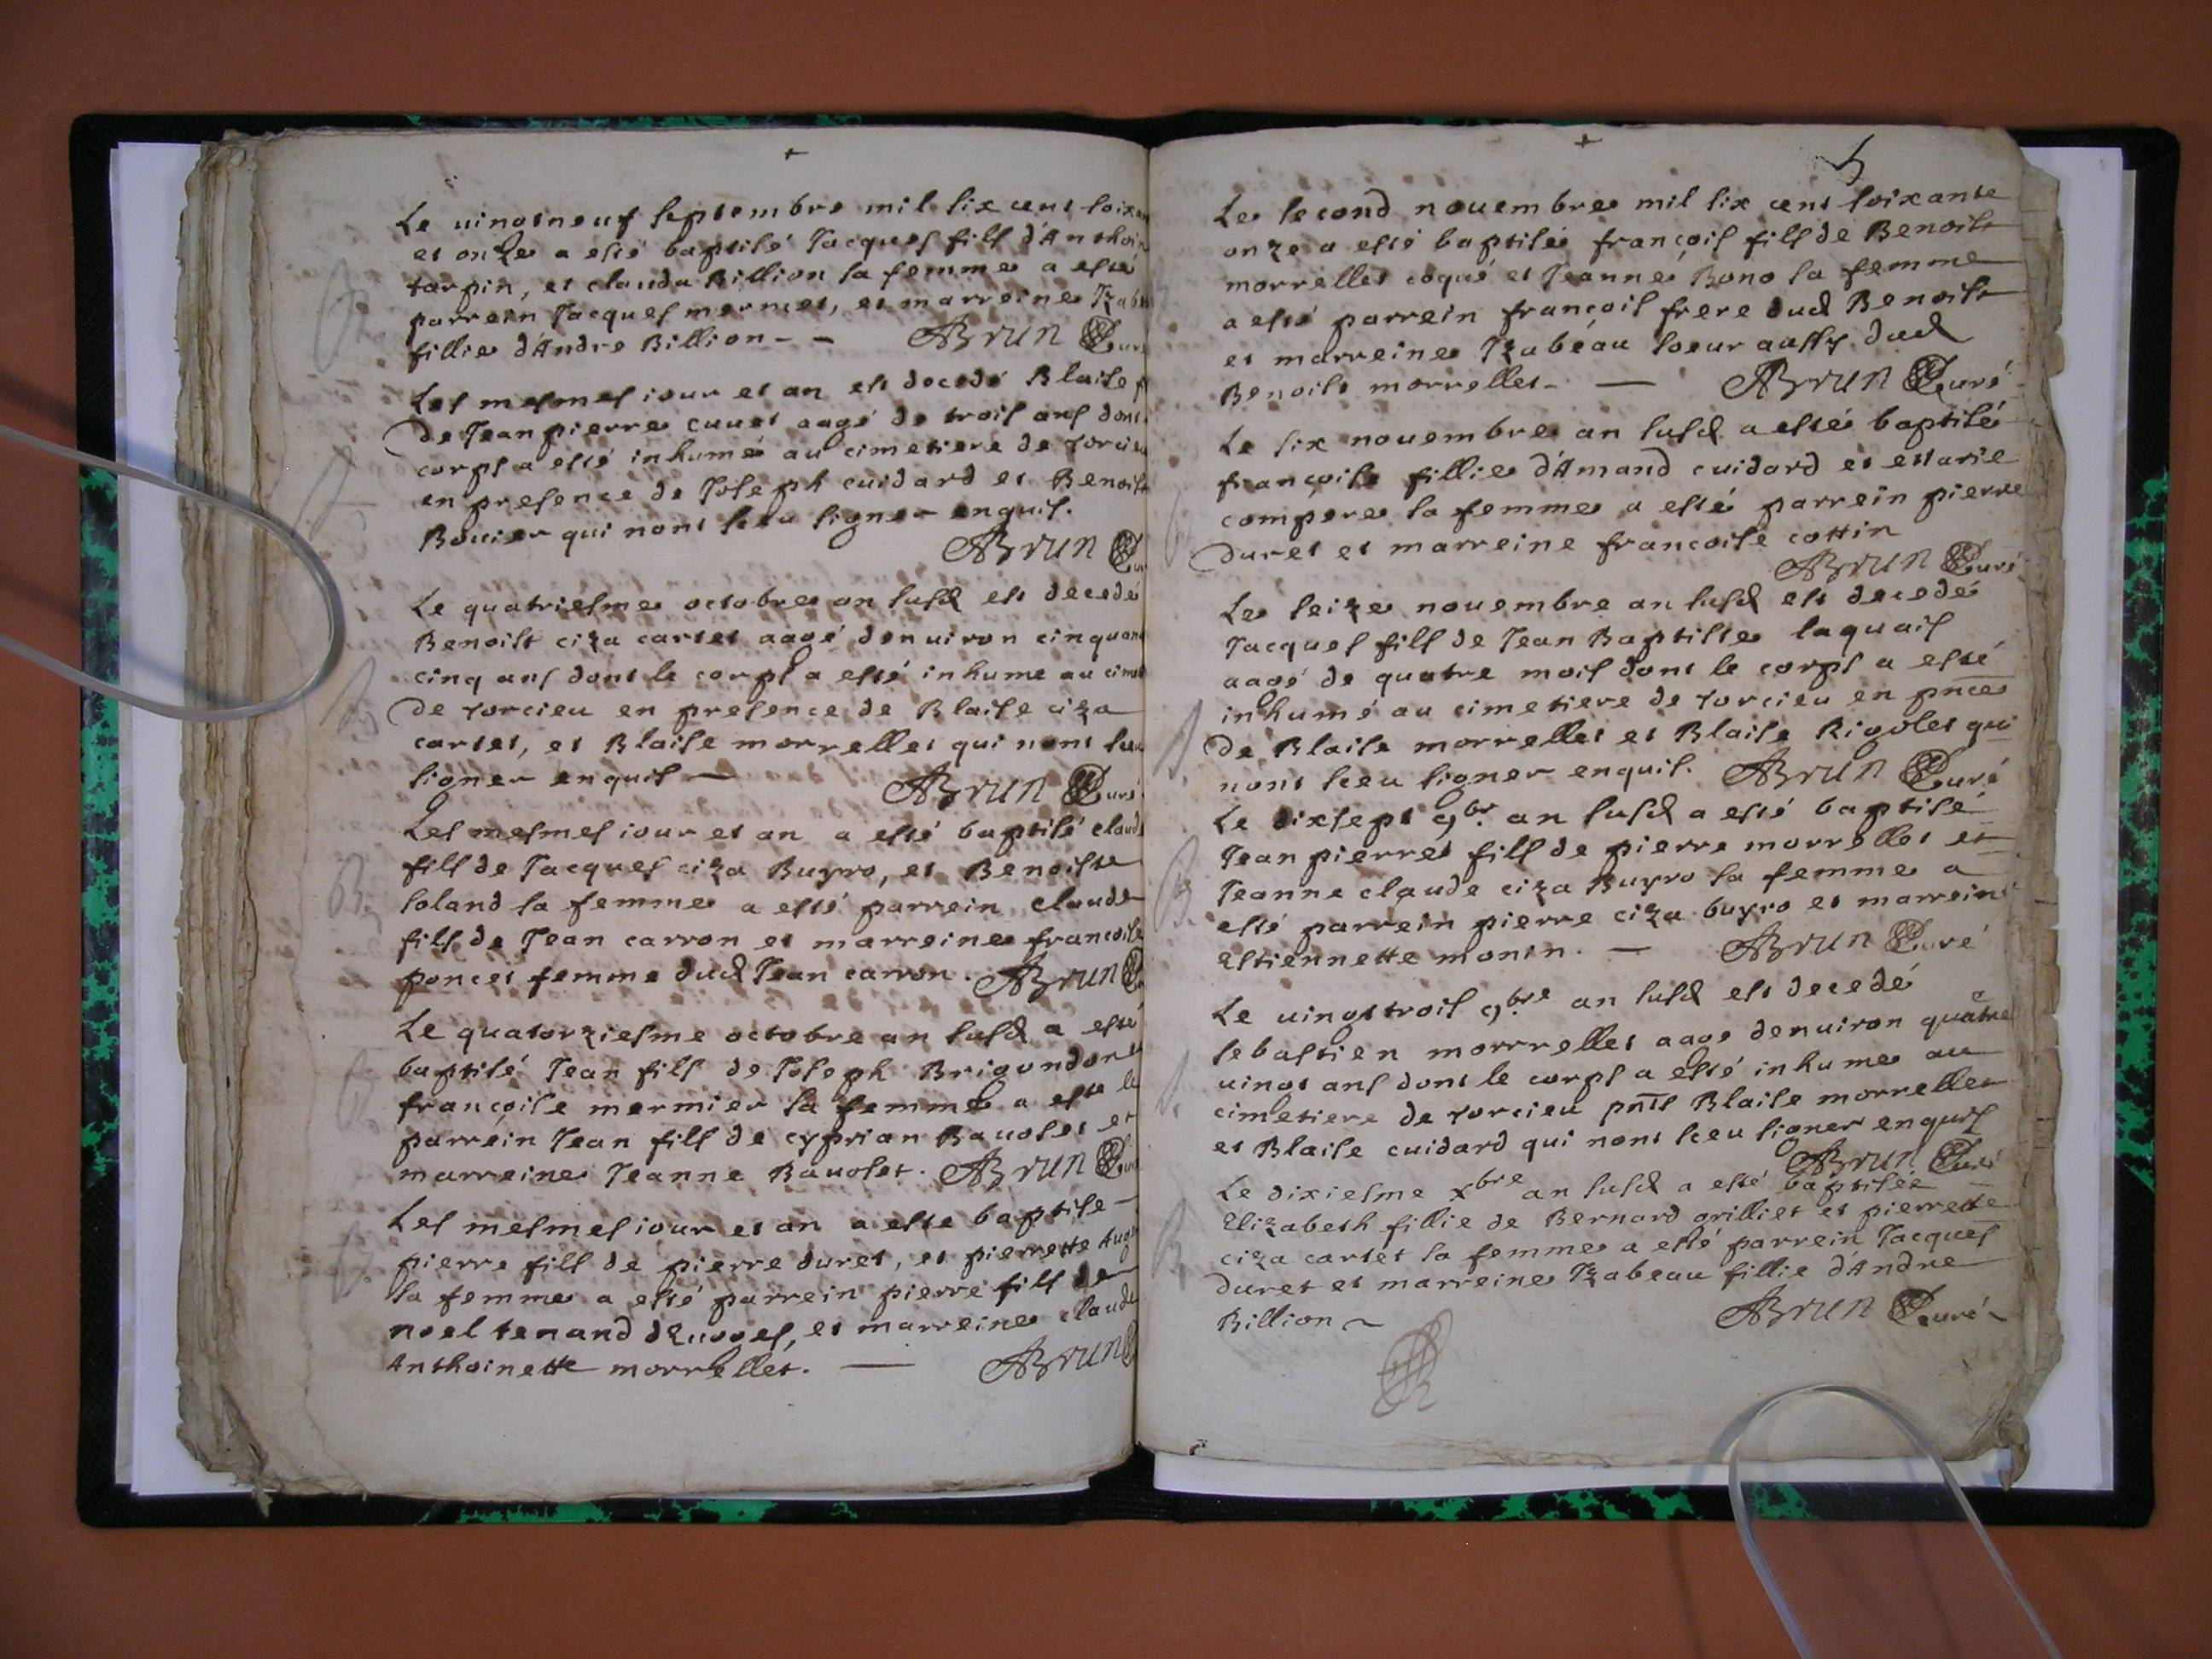 Le uingtneuf septembre mil six cent soixan
et onze a esté baptisé Jacques fils d'Anthoin
tarpin, et clauda Billion sa femme a esté
parrein Jacques mermet, et marreine Izab
fillie d'Andre Billion - - ABrun Curé
Les mesmes iour et an est decedé Blaise f
de Jean pierre cuuet aagé de trois ans dont
corps a esté inhumé au cimetiere de torcieu
en presence de Joseph cuidard et Benoist
Bouier qui nont sceu signer enquis.
ABrun Cur
Le quatriesme octobre an susd est decedé
Benoist ciza cartet aagé denuiron cinquant
cinq ans dont le corps a esté inhume au cimet
de torcieu en presence de Blaise ciza
cartet, et Blaise morrellet qui nont sceu
signer enquis — ABrun Curé
B.
Les mesmes iour et an a esté baptisé claude
fils de Jacques ciza Buyro, et Benoiste
soland sa femme a esté parrein claude
fils de Jean carron et marreine francoise
poncet femme dud Jean carron. ABrun C
Le quatorziesme octobre an susd a esté
baptisé Jean fils de Joseph Brigondonet
françoise mermier sa femme a esté le
parrein Jean fils de cyprian Bauolet et
marreine Jeanne Bauolet. ABrun Cur
Les mesmes iour et an a este baptise —
pierre fils de pierre duret, et pierrette Auge
sa femme a esté parrein pierre fils de
noel tenand dEuoges, et marreine claude
Anthoinette morrellet. — ABrun C
5
Le second nouembre mil six cent soixante
onze a esté baptisé françois fils de Benoist
morrellet coqué et Jeanne Bono sa femme
a esté parrein françois frere dud Benoist
et marreine Izabeau soeur aussy dud
Benoist morrellet - — ABrun Curé
Le six nouembre an susd a esté baptisé
françoise fillie d'Amand cuidard et estarie
compere sa femme a esté parrein pierre
duret et marreine francoise cottin
ABrun Curé
Le seize nouembre an susd est decedé
Jacques fils de Jean Baptiste laquais
aagé de quatre mois dont le corps a esté
inhumé au cimetiere de torcieu en pnce
de Blaise morrellet et Blaise Rigolet qui
nont sceu signer enquis. ABrun Curé
B.
Le dixsept 9br. an susd a esté baptisé
Jean pierre fils de pierre morrellet et
Jeanne claude ciza Buyro sa femme a
esté parrein pierre ciza buyro et marreine
Estiennette monin. — ABrun Curé
Le uingttrois 9bre an susd est decedé
sebastien morrrellet aage denuiron quatre
uingt ans dont le corps a esté inhume au
cimetiere de torcieu pnts Blaise morrellet
et Blaise cuidard qui nont sceu signer enquis
ABrun Curé
B
Le dixiesme xbre an susd a esté baptisée
Elizabeth fillie de Bernard grilliet et pierrette
ciza cartet sa femme a esté parrein Jacques
duret et marreine Izabeau fillie d'Andre
Billion ~ ABrun Curé